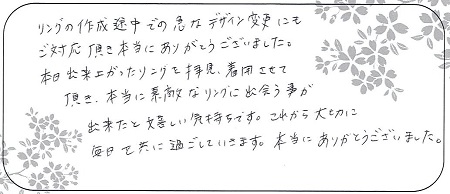 リングの作成途中での急なデザイン変更にも
ご対応頂き本当にありがとうございました。
本日出来上がったリングを拝見、着用させて
頂き、本当に素敵なリングに出会う事が
出来たと嬉しい気持ちです。これから大切に
毎日を共に過ごしていきます。本当にありがとうございました。